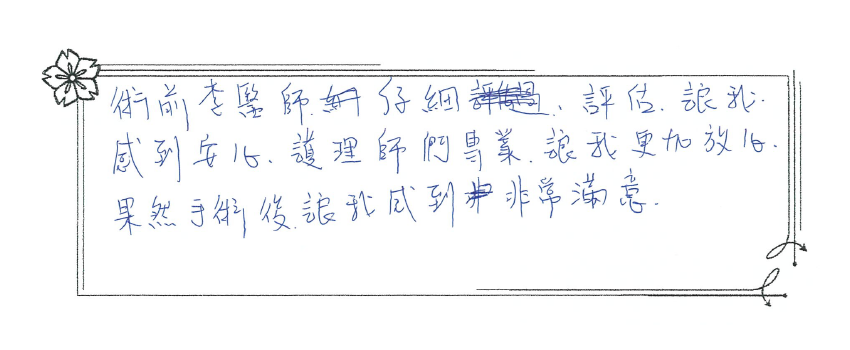 術前李醫師仔細、評估.讓我.
感到安心.護理師們專業.讓我更加放心.
果然手術後.讓我感到非常滿意.